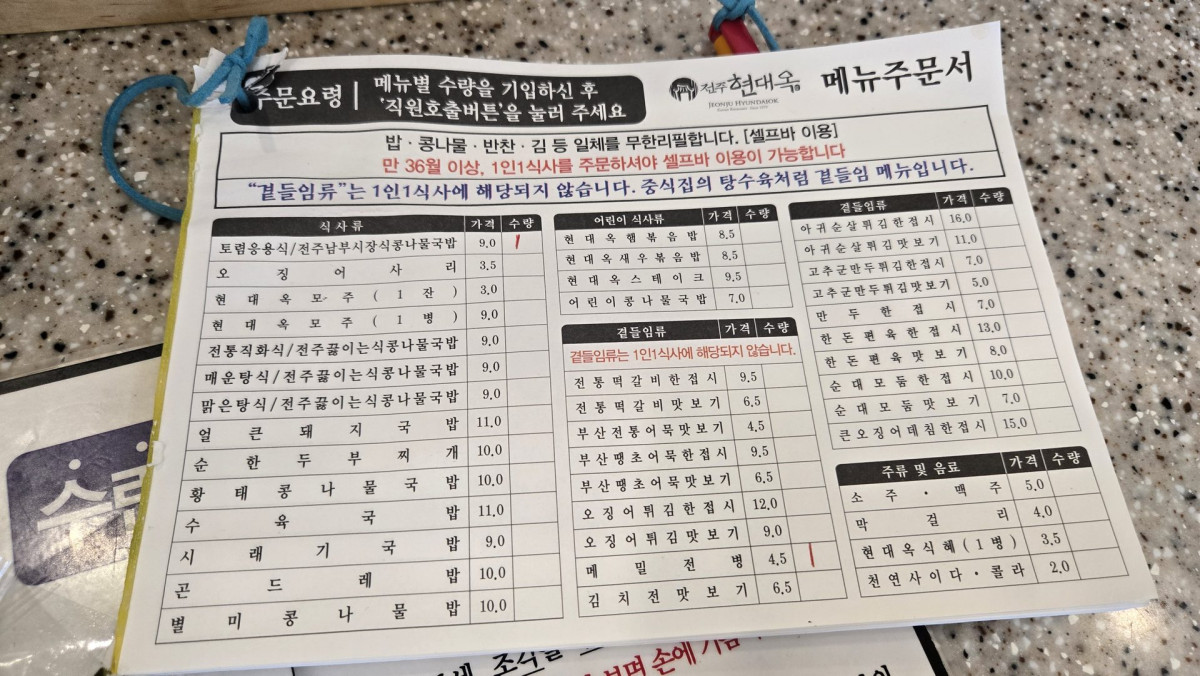 주문요령
메뉴별 수량을 기입하신 후
'직원호출버튼'을 눌러 주세요
전주현대옥
JEONJU HYUNDAIOK
메뉴주문서
밥 · 콩나물 · 반찬 · 김 등 일체를 무한리필합니다. [셀프바 이용]
만 36월 이상, 1인1식사를 주문하셔야 셀프바 이용이 가능합니다
"곁들임류"는 1인1식사에 해당되지 않습니다. 중식집의 탕수육처럼 곁들임 메뉴입니다.
식사류 가격 수량
토렴응용식/전주남부시장식콩나물국밥 9.0 /
오징어사리 3.5
현대옥모주(1잔) 3.0
현대옥모주(1병) 9.0
전통직화식/전주끓이는식콩나물국밥 9.0
매운탕식/전주끓이는식콩나물국밥 9.0
맑은탕식/전주끓이는식콩나물국밥 9.0
얼큰돼지국밥 11.0
순한두부찌개 10.0
황태콩나물국밥 10.0
수육국밥 11.0
시래기국밥 9.0
곤드레밥 10.0
별미콩나물밥 10.0
어린이 식사류 가격 수량
현대옥햄볶음밥 8.5
현대옥새우볶음밥 8.5
현대옥스테이크 9.5
어린이콩나물국밥 7.0
곁들임류 가격 수량
곁들임류는 1인1식사에 해당되지 않습니다.
전통떡갈비한접시 9.5
전통떡갈비맛보기 6.5
부산전통어묵맛보기 4.5
부산땡초어묵한접시 9.5
부산땡초어묵맛보기 6.5
오징어튀김한접시 12.0
오징어튀김맛보기 9.0
메밀전병 4.5 |
김치전맛보기 6.5
곁들임류 가격 수량
아귀순살튀김한접시 16.0
아귀순살튀김맛보기 11.0
고추군만두튀김한접시 7.0
고추군만두튀김맛보기 5.0
만두한접시 7.0
한돈편육한접시 13.0
한돈편육맛보기 8.0
순대모둠한접시 10.0
순대모둠맛보기 7.0
큰오징어데침한접시 15.0
주류 및 음료 가격 수량
소주 · 맥주 5.0
막걸리 4.0
현대옥식혜(1병) 3.5
천연사이다 · 콜라 2.0
손에